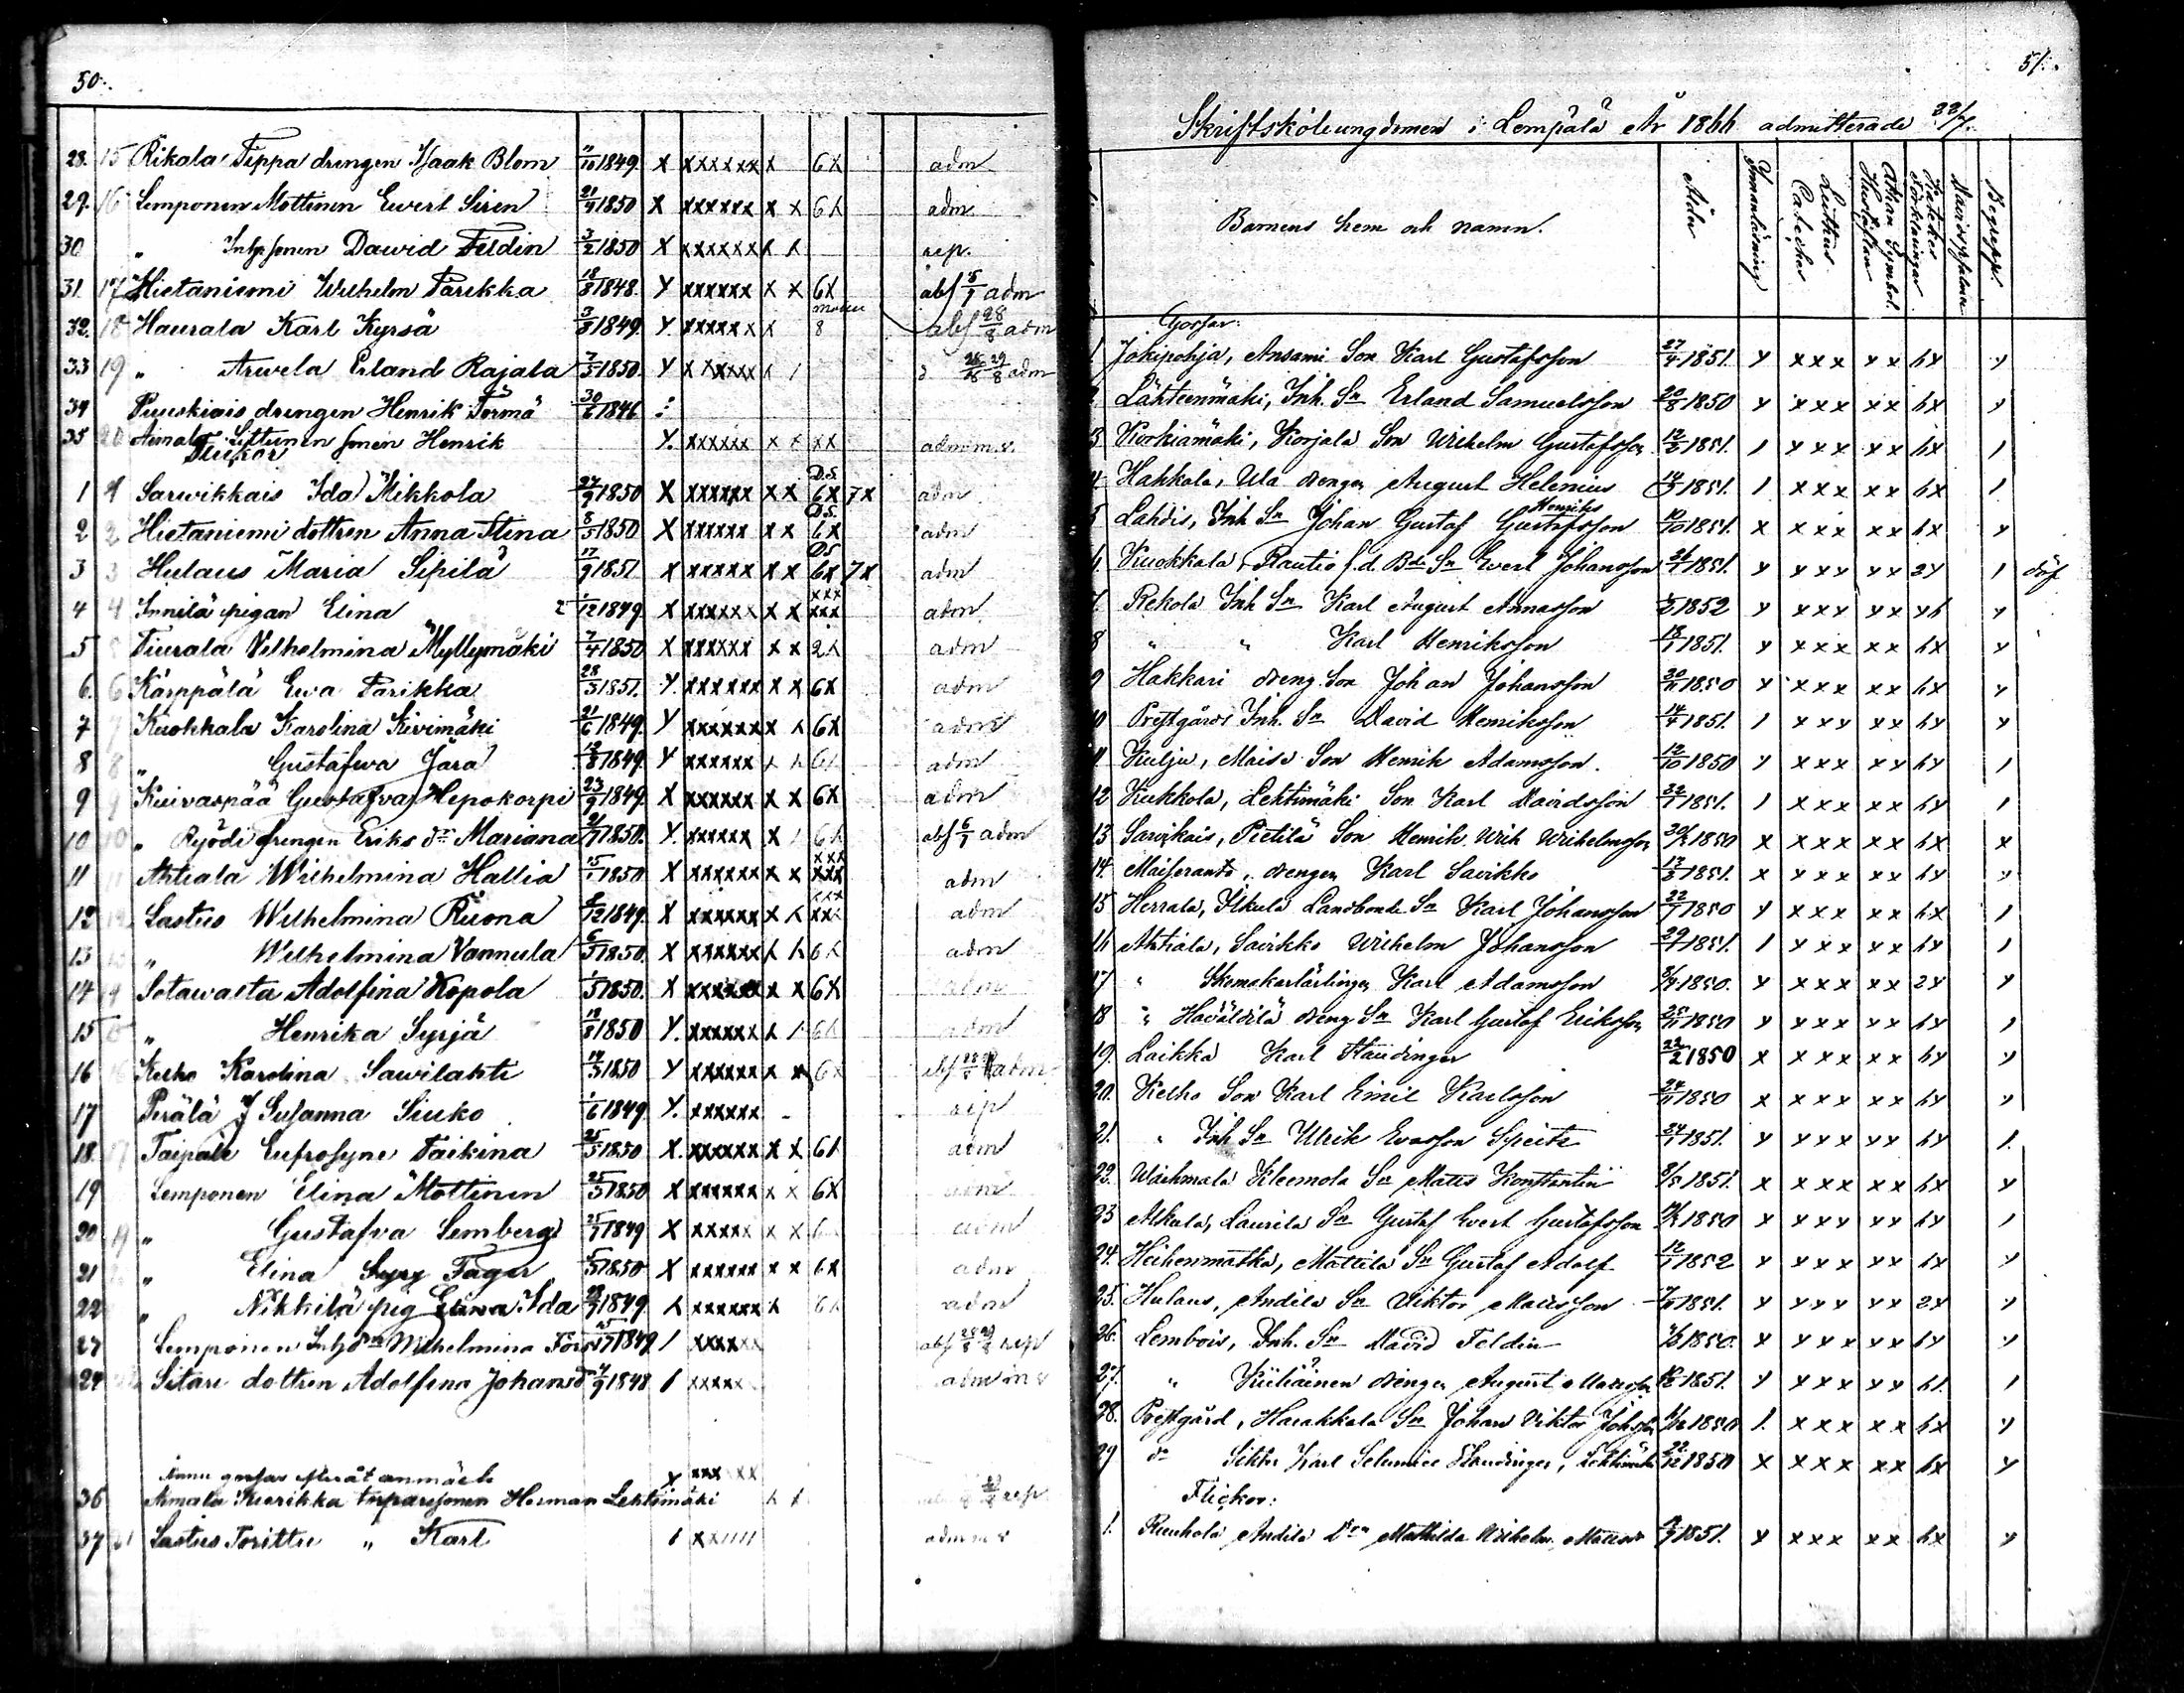 50.
28. 15 Rikala Teppa drengen Isaak Blom 11/10 1849. X XXXXXX X 6X adm
29. 16 Lemponen Mottinen Ewert Siren 21/4 1850 X XXXXXX X X 6X adm
30 " Inhs sonen Dawid Feldin 3/2 1850 X XXXXXX X X rep.
31. 17 Hietaniemi Wilhelm Parikka 18/8 1848. Y XXXXXX X X 6X abs 5/7 adm
32. 18 Haurala Karl Kyrsä 3/3 1849. Y. XXXXXX X 8 abs 28/8 adm
33 19 " Arwela Erland Rajala 7/5 1850. Y XXXXXX 29/8 adm
34 Puuskiais drengen Henrik Törmä 30/6 1846
35 20 Aimala sonen Henrik Y. XXXXXX X X XX adm m. s.
Flickor
1 Sarwikkais Ida Mikkola 27/9 1850 X XXXXXX X X D.S. 6X 7X adm
2 2 Hietaniemi dottren Anna Stina 8/5 1850 X XXXXXX X X D.S. 6X adm
3 3 Hulaus Maria Sipilä 17/9 1851 X XXXXXX X X D.S. 6X 7X adm
4 4 Innilä pigan Elina 1/12 1849. X XXXXXX X X XXX XXX adm
5 Tiurala Vilhelmina Myllymäki 7/4 1850 X XXXXXX X X 2X adm
6. 6 Kärppälä Ewa Parikka 28/3 1851. Y. XXXXXX X X 6X adm
7 7 Kuokkala Karolina Kivimäki 21/6 1849. Y XXXXXX X X 6X adm
8 8 " Gustafwa Jära 13/8 1849 Y XXXXXX X X 6X adm
9 9 Kuivaspää Gustafva Hepokorpi 23/9 1849. X XXXXXX X X 6X adm
10 10 " Ryödi drengen Eriks dr Mariana 21/7 1850. Y. XXXXXX X 6X abs 6/7 adm
11 11 Ahtiala Wilhelmina Hallia 15/1 1850 X XXXXXX X X XXX XXX adm
12 12 Sastus Wilhelmina Ruona 1849. X XXXXXX X X XXX XXX adm
13 13 " Wilhelmina Vannula 6/5 1850. X XXXXXX X X 6X adm
14 14 Sotawalta Adolfina Kopola 1/5 1850. X XXXXXX X X 6X adm
15 15 " Henrika Syrjä 18/8 1850 Y. XXXXXX X 6X adm
16 16 Kelho Karolina Sawilahti 14/3 1850 Y XXXXXX X X 6X adm
17 Perälä J Susanna Siuko 1/6 1849 Y. XXXXXX rep
18. 17 Taipale Eufrosyne Taikina 25/5 1850 X. XXXXXX X X 6X adm
19 Lemponen Elina Mottinen 25/5 1850 X XXXXXX X X 6X adm
20 19 " Gustafva Lemberg 25/7 1849 X XXXXX X X 6 adm
21 " Elina Fager 5/5 1850 X XXXXXX X X 6X adm
22 " Nikkilä pig Ida 1849. X XXXXXX X 6X adm
23 Lemponen Inhs dr Wilhelmina 1849. 1 XXXXXX abs rep
24 Sitari dottren Adolfina Johansd 4/9 1848 1 XXXXX adm m s
Ännu gossar
36 Aimala Kurikka torparesonen Herman Lehtimäki Y XXXXX X X rep
37 21 Sastus Torittu " Karl 1 XX adm m s
51.
Skriftskoleungdomen i Lempälä År 1866 admitterade 22/7.
Barnens hem och namn.
Ålder
Innanläsning
Luthers Cateches
Athan. Symbol. Hustaflan
Kateches Förklaringar
Davidspsalmer
Begrepp.
Gossar:
1 Jokipohja, Ansami Son Karl Gustafsson 27/4 1851. Y XXX XX hX Y
2 Lähteenmäki, Inh. Sn Erland Samuelsson 20/8 1850 Y XXX XX hX Y
3 Kurkiamäki, Korjala Son Wilhelm Gustafsson 12/3 1851. 1 XXX XX hX 1
4 Hakkala, Ula drengen August Helenius 14/5 1851. 1 XXX XX hX 1
5 Lahdis, Inh Sn Johan Gustaf Gustafsson Henriks 10/10 1851. X XXX XX hX Y
6. Kuokkala, Rautio f.d. Bde Sn Evert Johansson 26/7 1851. Y XXX XX 2Y 1 döf
7. Rekola Inh Sn Karl August Annasson 1852 Y XXX XX Yh Y
8 " " Karl Henriksson 13/1 1851. Y XXX XX hX Y
9 Hakkari dreng. Son Johan Johansson 30/11 1850 Y XXX XX hX Y
10 Prestgårds Inh. Sn David Henriksson 14/4 1851. 1 XXX XX hX Y
11 Kulju, Maisi Son Henrik Adamsson. 12/10 1850 Y XXX XX hY 1
12 Kukkola, Lehtimäki Son Karl Davidsson 22/1 1851. 1 XXX XX hY 1
13 Sarvikais, Pietilä Son Henrik Wilh Wilhelmsson 1850 X XXX XX hX X
14. Moisioranta, drengen Karl Savikko 13/3 1851. X XXX XX hX Y
15 Herrala, Ilkula Landbonde Sn Karl Johansson 22/7 1850 Y XXX XX hX 1
16 Ahtiala, Savikko Wilhelm Johansson 29/1 1851. 1 XXX XX hY 1
17 " Skomakarlärlingen Karl Adamsson 1850. Y XXX XX 2Y Y
18 " dreng Sn Karl Gustaf Eriksson 25/11 1850 Y XXX XX hY 1
19. Laikka Karl Staudinger 22/2 1850 X XXX XX hY Y
20. Kelho Son Karl Emil Karlsson 24/11 1850 X XXX XX hY Y
21. " Inh Sn Ulrik Evasson Speitz 24/1 1851. Y XXX XX hY 1.
22. Waihmala Kleemola Sn Matts Konstantin 8/5 1851. X XXX XX hX X
23 Alkala, Laurila Sn Gustaf Evert Gustafsson 1850 Y XXX XX hY 1
24. Heikenmatka, Mattila Sn Gustaf Adolf 12/1 1852 Y XXX XX hX Y
25. Hulaus, Andila Sn Viktor Mattsson 1851. Y XXX XX 2X Y
26. Lembois, Inh. Sn David Feldin 3/2 1850. X XXX XX hY Y
27. " drengen August Mattsson 1851. Y XXX XX h1. 1
28. Prestgård, Harakkala Sn Johan Viktor Johsson 1850 1. XXX XX hX Y
29 do Karl Staudinger, 22/12 1850 X XXX XX hX Y
Flickor:
1. Ruuhola Andila Drn Mathilda Wilhelm. 1851. Y XXX XX hX Y